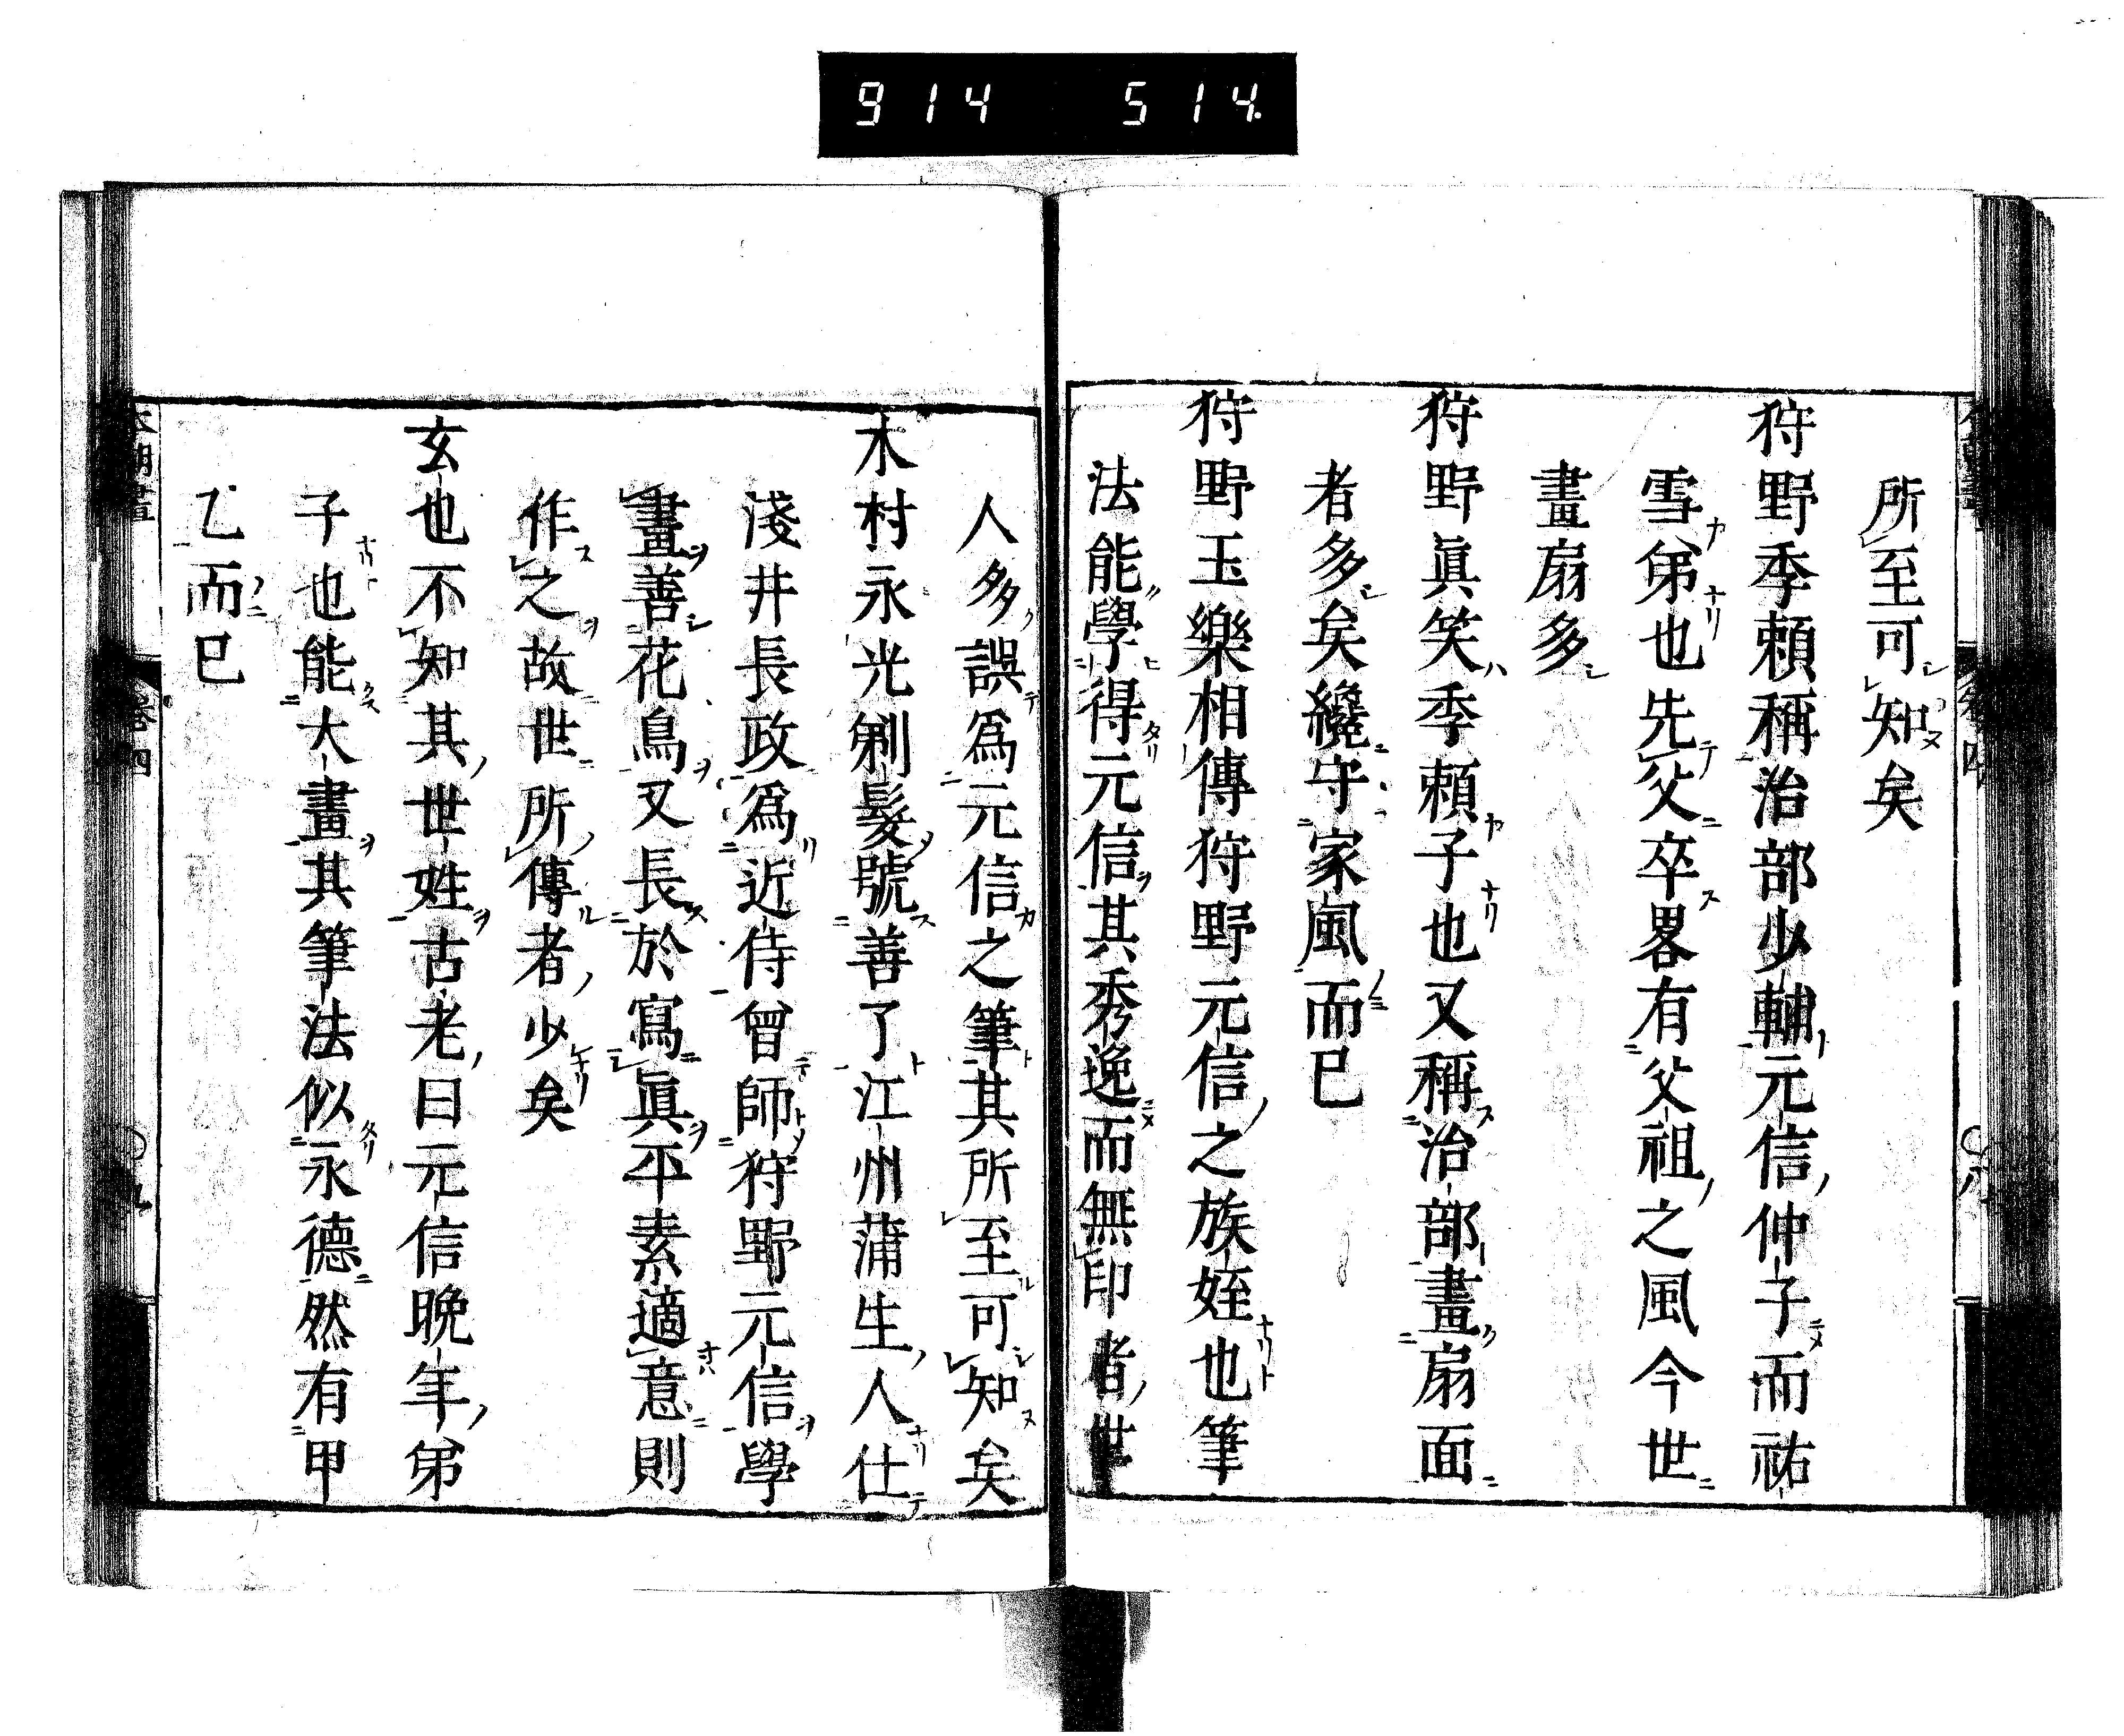 914 514
所至可知矣
狩野季頼稱治部少輔元信仲子而祐
雪弟也先父卒畧有父祖之風今世
畫扇多
狩野眞笑季頼子也又稱治部畫扇面
者多矣纔守家風而已
狩野玉樂相傳狩野元信之族姪也筆
法能學得元信其秀逸而無印者世
人多誤爲元信之筆其所至可知矣
木村永光剃髮號善了江州蒲生人仕
淺井長政爲近侍曾師狩野元信學
畫善花鳥又長於寫眞平素適意則
作之故世所傳者少矣
玄也不知其世姓古老曰元信晩年弟
子也能大畫其筆法似永德然有甲
乙而已